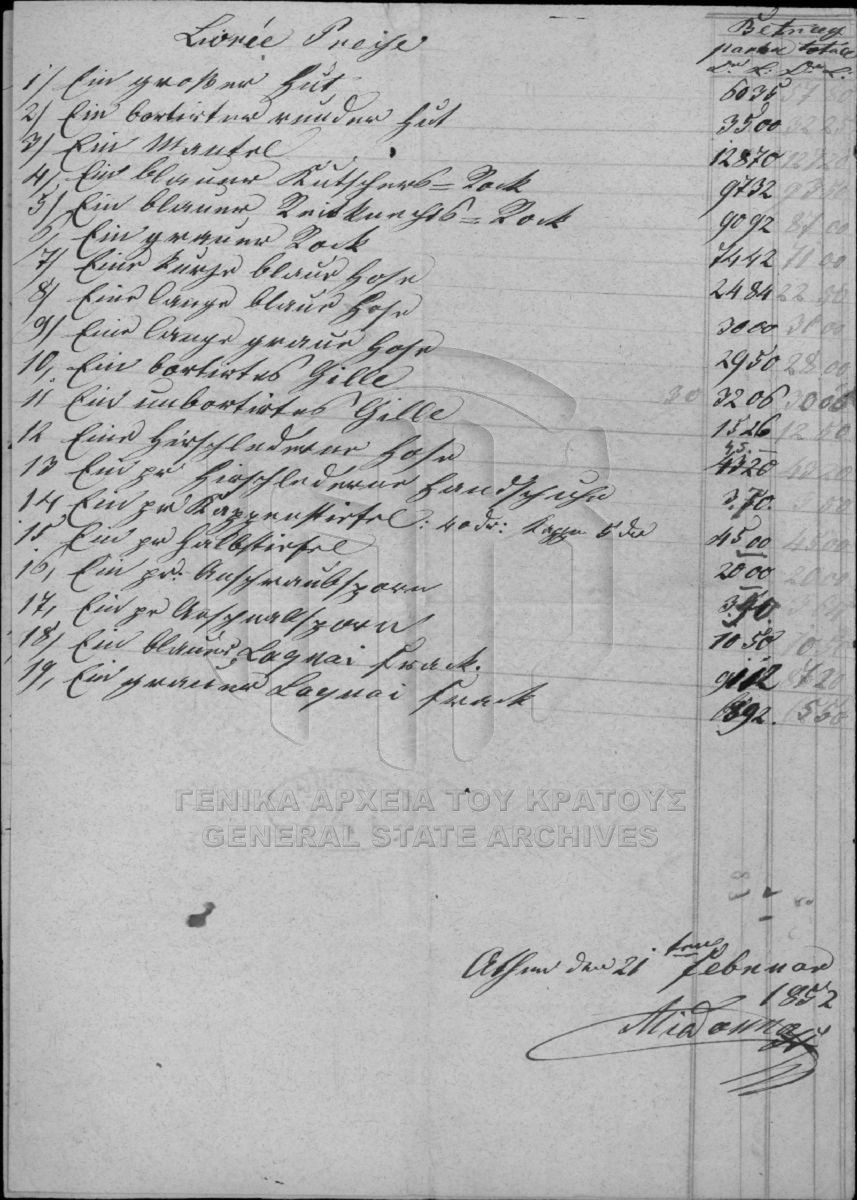 Livrée Preise
Betrag
partial totale
Dr. L. Dr. L.
1) Ein großer Hut 60 35 57 50
2) Ein bortirter runder Hut 35 00 32 25
3) Ein Mantel 128 70 127 20
4) Ein blauer Kutschers=Rock 97 32 93 10
5) Ein blauer Reitknechts=Rock 90 92 87 00
6) Ein grauer Rock 74 42 71 00
7) Eine kurze blaue Hose 24 84 22 50
8) Eine lange blaue Hose 30 00 30 00
9) Eine lange graue Hose 29 50 28 00
10, Ein bortirtes Gille 30 32 06 30 00
11 Ein unbortirtes Gille 15 26 12 50
12 Eine Hirschlederne Hose 45.– 43 20 40 20
13 Ein pr Hirschlederne Handschuhe 3.70. 3 50
14, Ein pr Kappenstiefel: 40 dr: Kappe 5 dr 45 00 45 00
15 Ein pr Halbstiefel 20 00 20 00
16, Ein pr. Anschraubsporn
17, Ein pr Anschnalsporn 10 50 10 50
18) Ein blauer Laquai Frack. 91 12 87 20
19, Ein grauer Laquai Frack 68 92. 65 50
ΓΕΝΙΚΑ ΑΡΧΕΙΑ ΤΟΥ ΚΡΑΤΟΥΣ
GENERAL STATE ARCHIVES
Athen den 21. ten Februar
1852